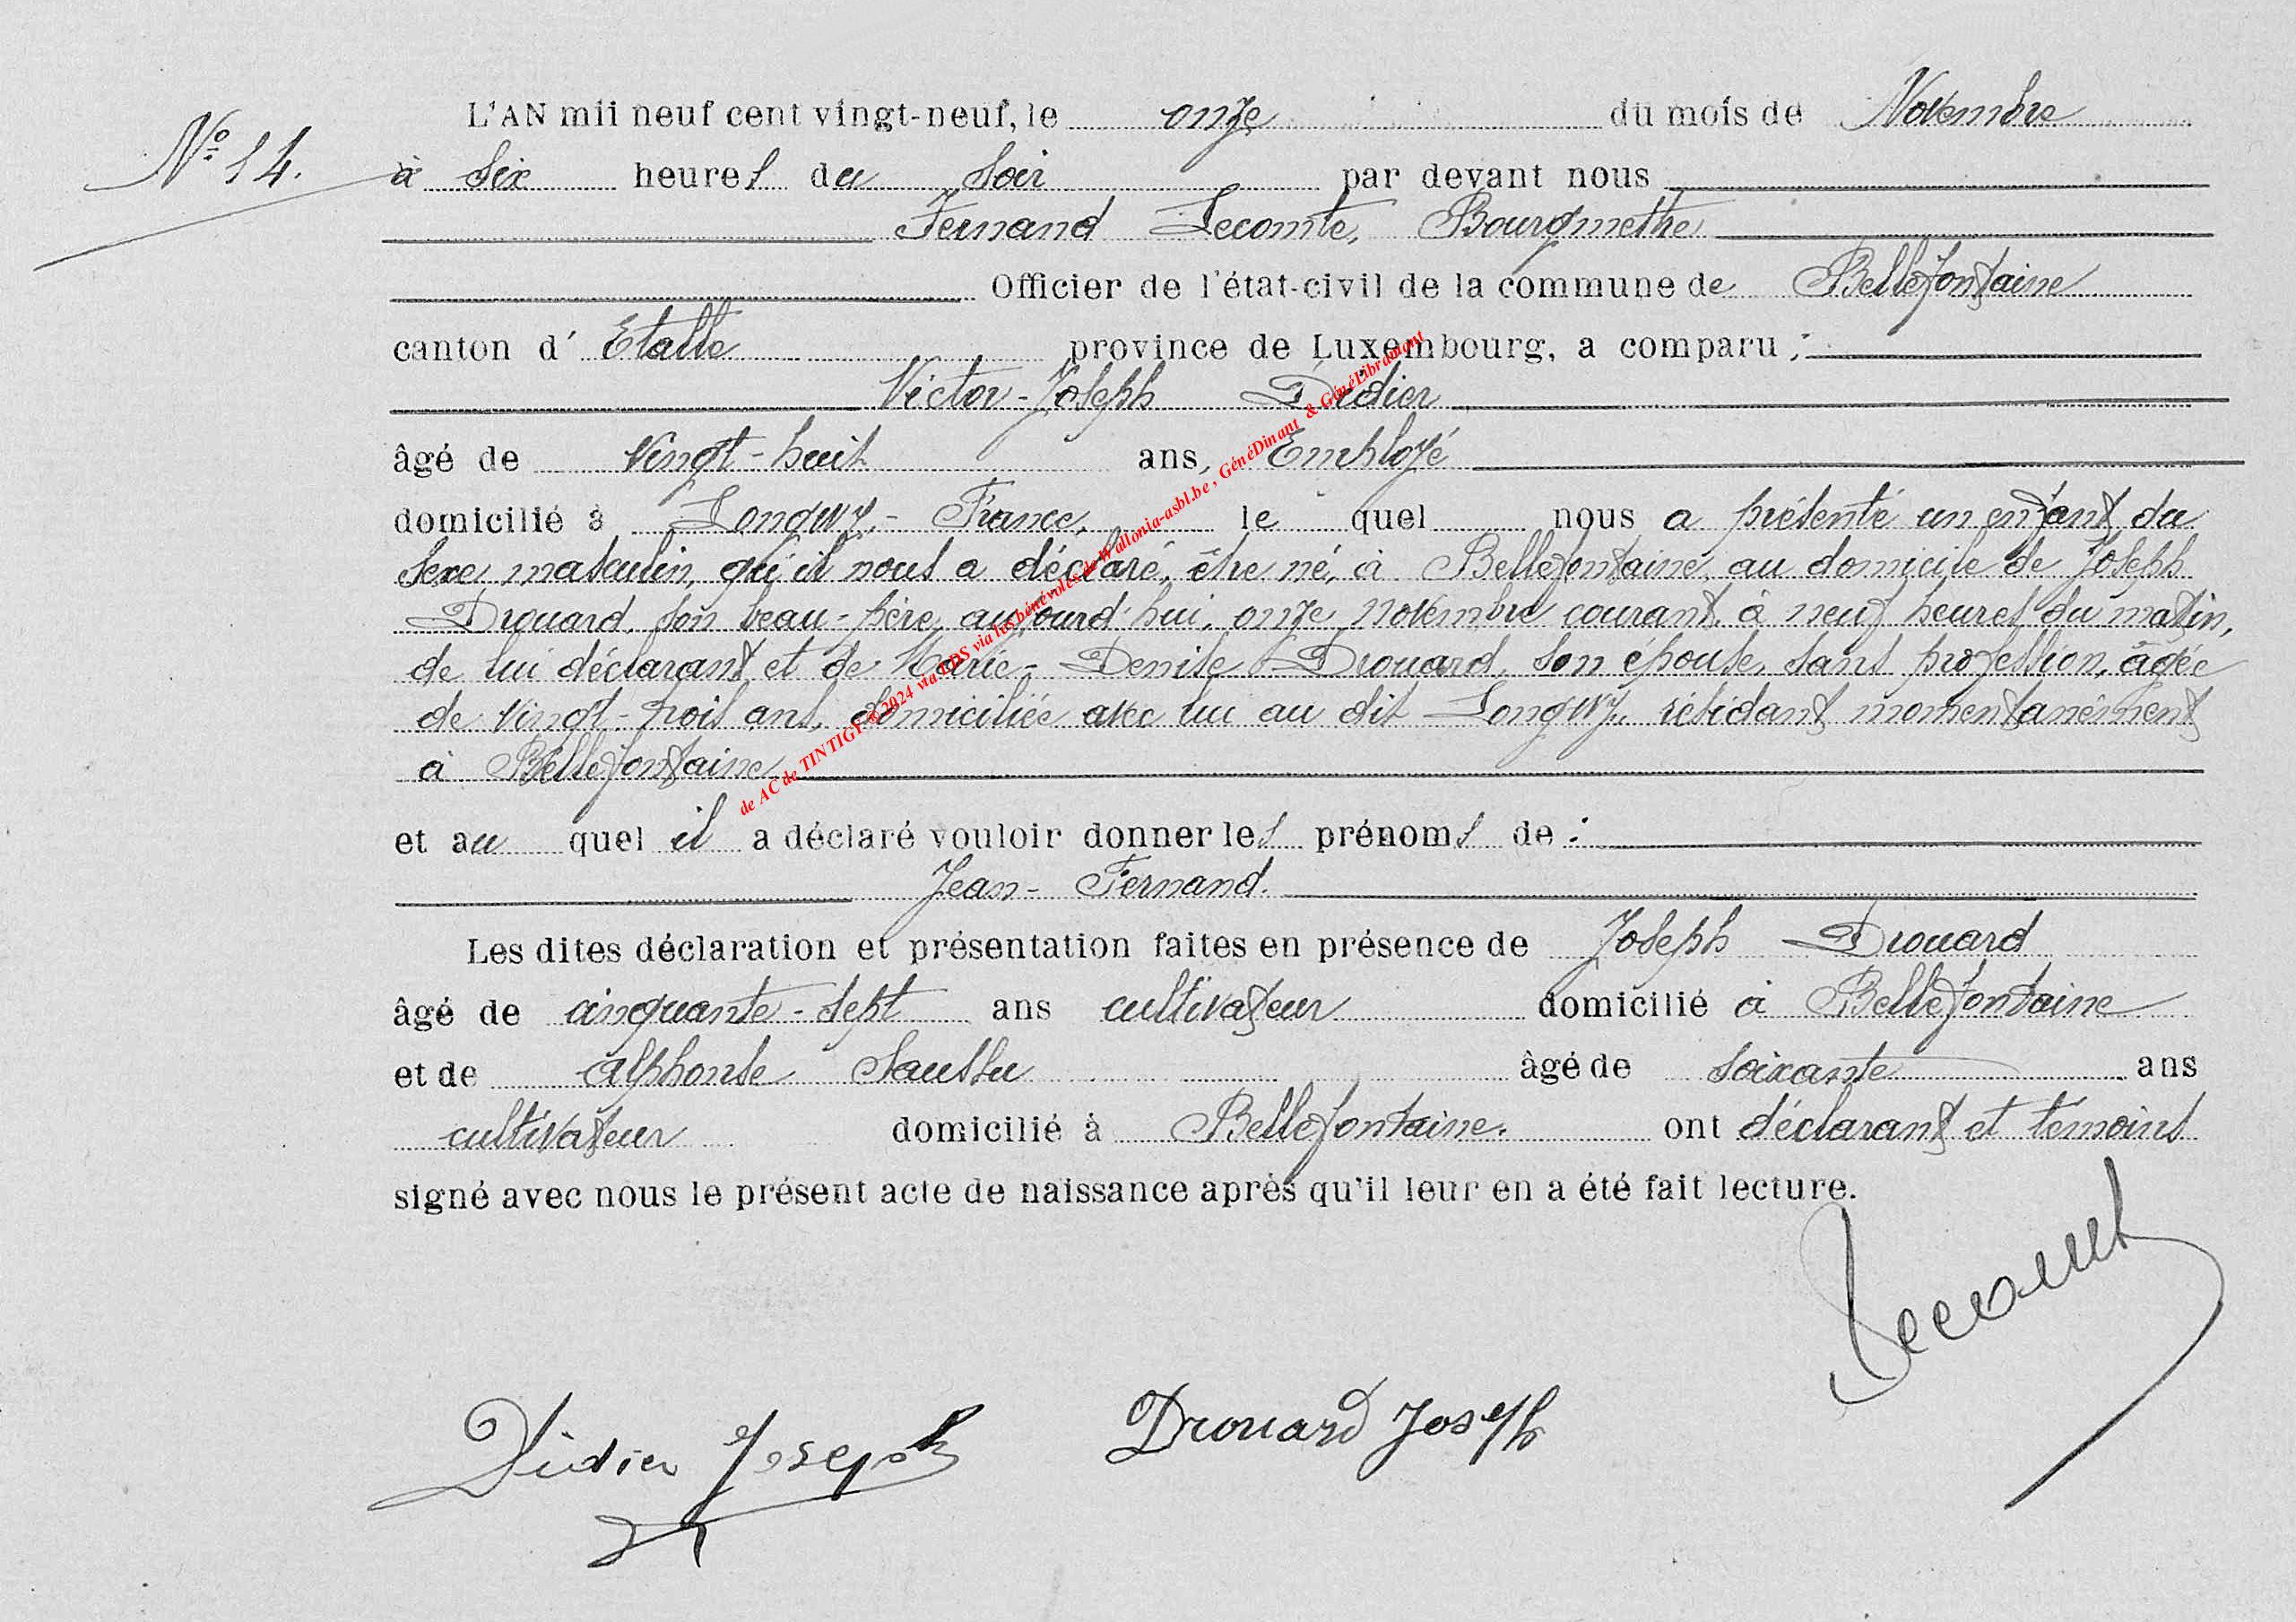 L'AN mil neuf cent vingt-neuf, le onze du mois de Novembre
N° 14.
à six heures du soir par devant nous
Fernand Lecomte, Bourgmestre
Officier de l'état-civil de la commune de Bellefontaine
canton d' Etalle province de Luxembourg, a comparu :
Victor-Joseph Didier
âgé de vingt-huit ans, Employé
domicilié à Longwy - France, le quel nous a présenté un enfant du
sexe masculin, qu'il nous a déclaré, être né, à Bellefontaine, au domicile de Joseph
Drouard, son beau-père, aujourd'hui, onze novembre courant, à neuf heures du matin,
de lui déclarant et de Marie-Denise Drouard, son épouse, sans profession, âgée
de vingt-trois ans, domiciliée avec lui au dit Longwy, résidant momentanément
à Bellefontaine
et au quel il a déclaré vouloir donner les prénoms de :
Jean-Fernand.
Les dites déclaration et présentation faites en présence de Joseph Drouard
âgé de cinquante-sept ans cultivateur domicilié à Bellefontaine
et de Alphonse Saussu âgé de soixante ans
cultivateur domicilié à Bellefontaine. ont déclarant et témoins
signé avec nous le présent acte de naissance après qu'il leur en a été fait lecture.
Lecomte
Didier Joseph Drouard Joseph
de AC de TINTIGY @2024 via LDS via les bénévoles de Wallonia-asbl.be , GénéDinant & GénéLibramont